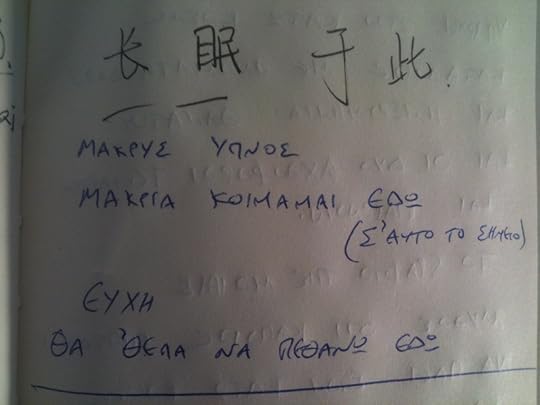 长眠于此.
ΜΑΚΡΥΣ ΥΠΝΟΣ
ΜΑΚΡΙΑ ΚΟΙΜΑΜΑΙ ΕΔΩ
(Σ'ΑΥΤΟ ΤΟ ΣΗΜΕΙΟ)
ΕΥΧΗ
ΘΑ ΉΘΕΛΑ ΝΑ ΠΕΘΑΝΩ ΕΔΩ